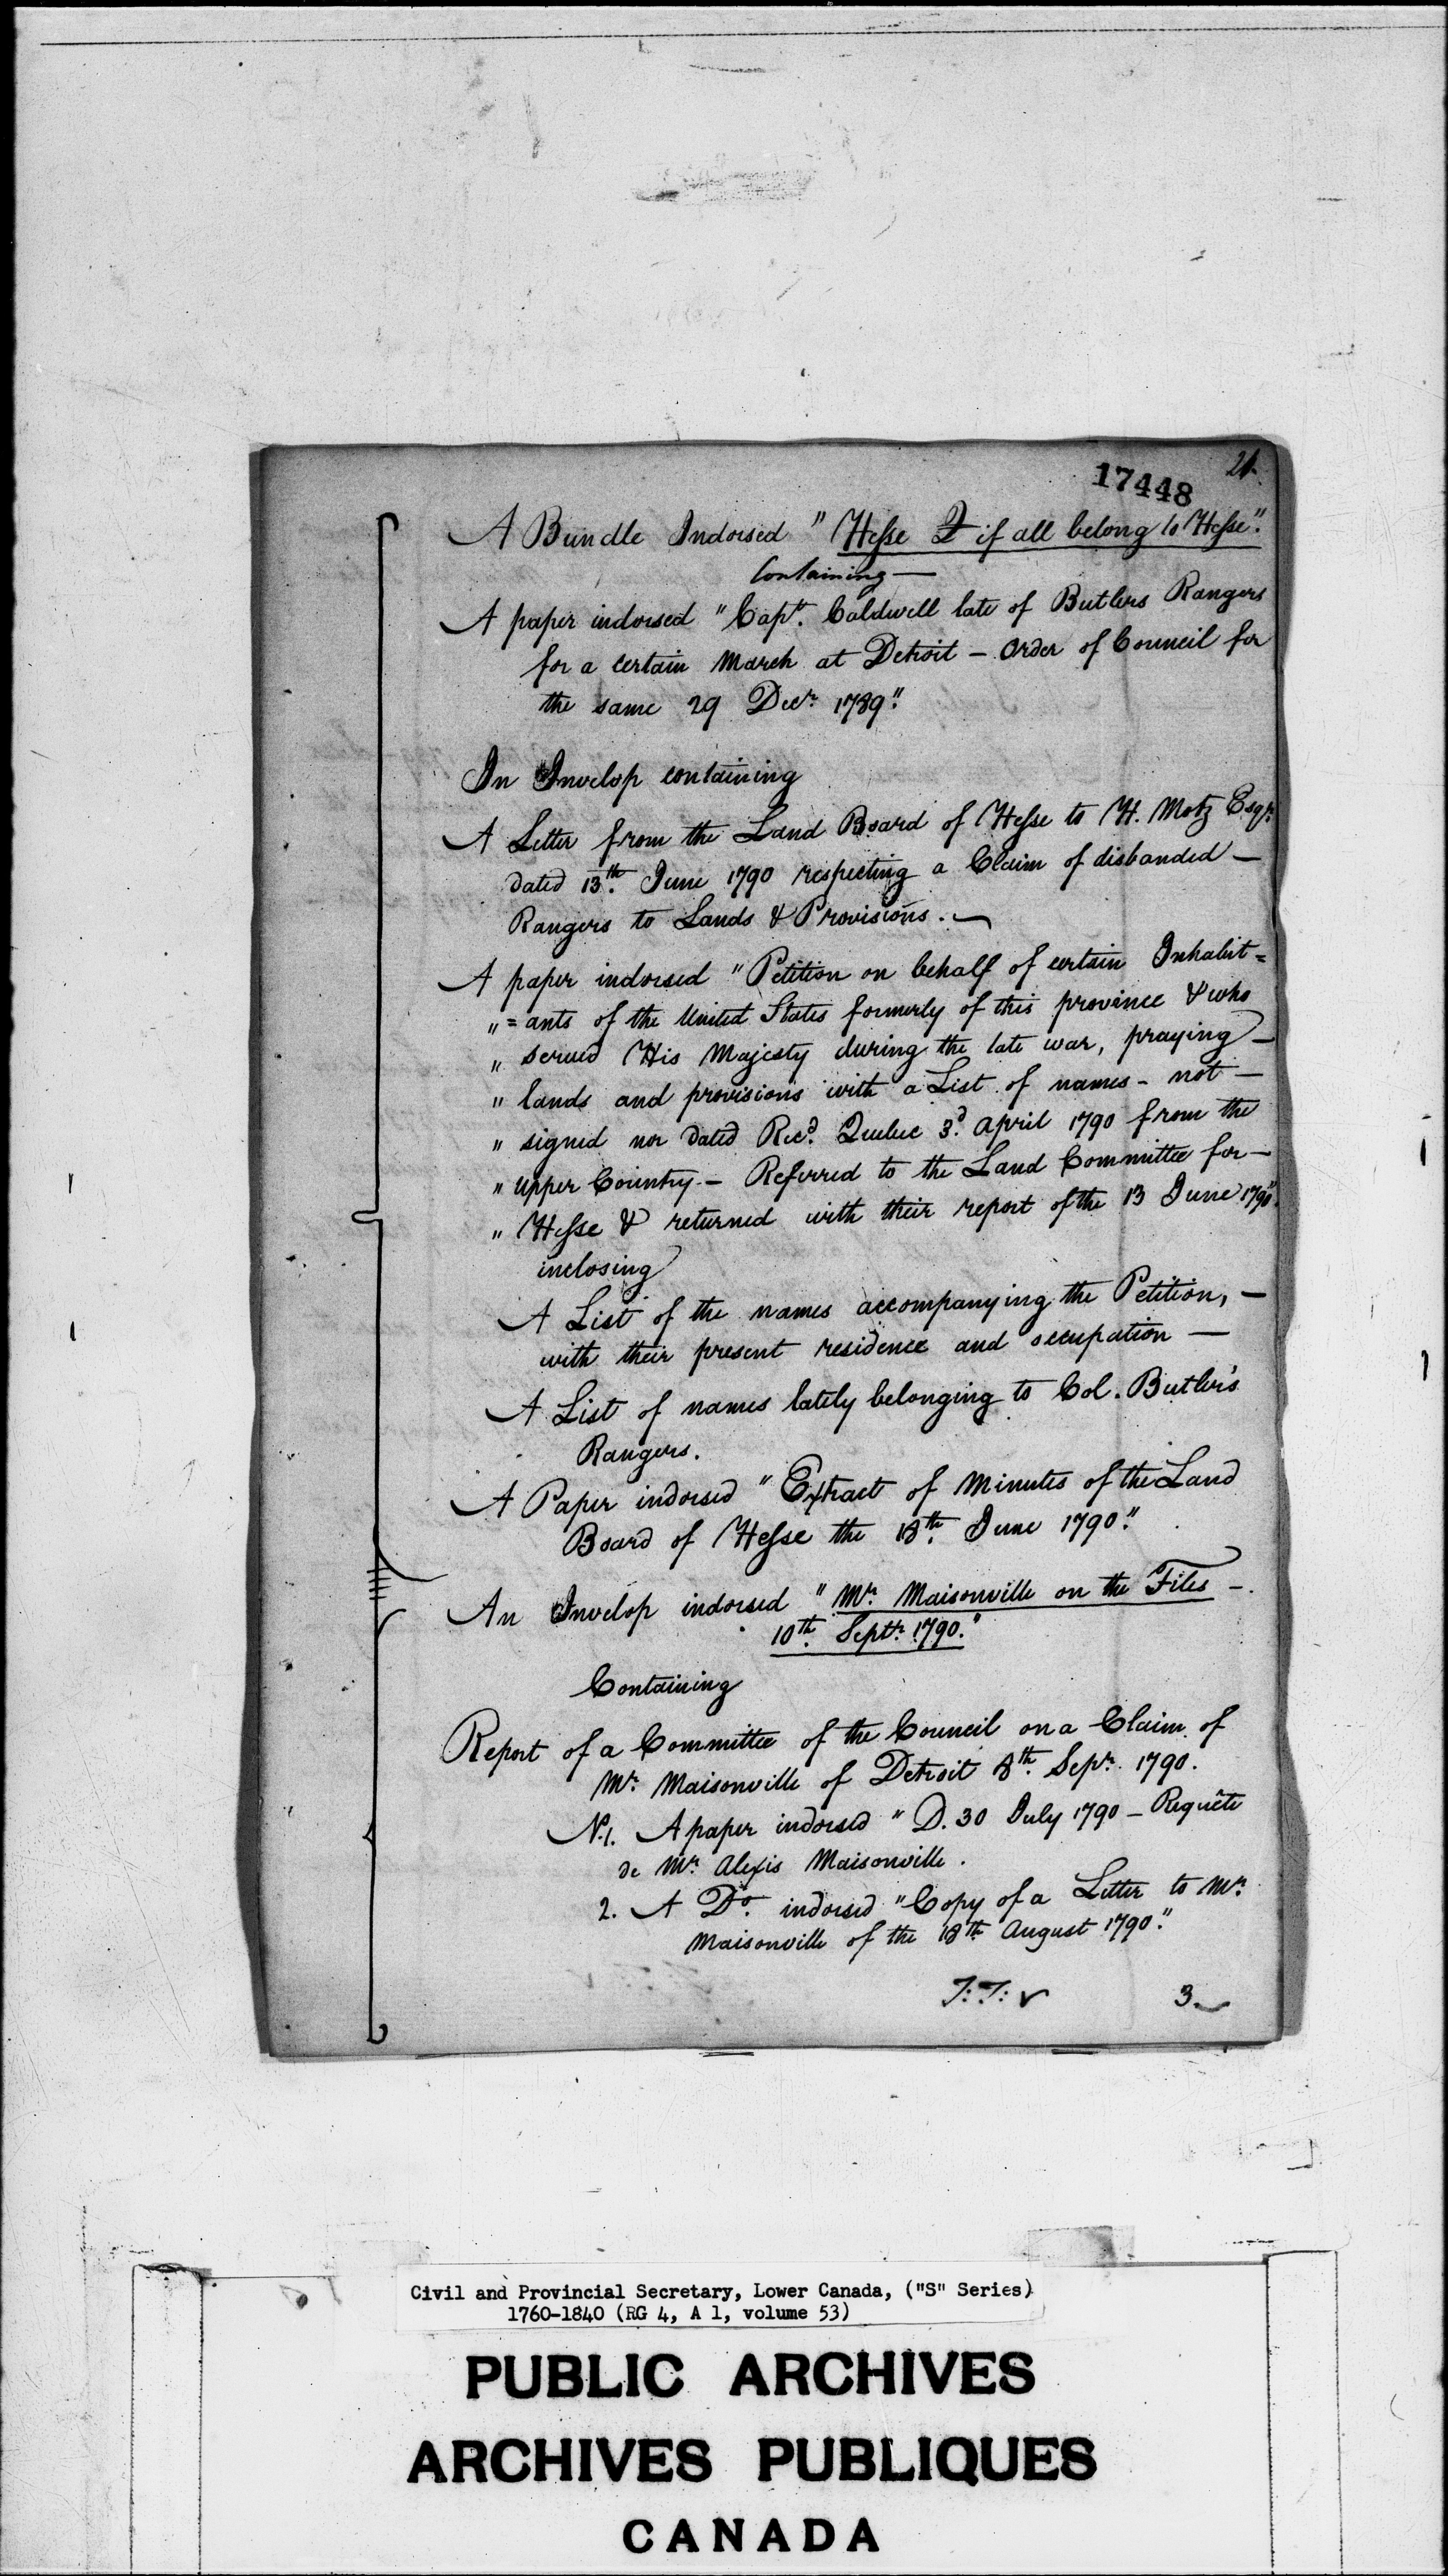 21.
17448
A Bundle Indorsed "Hesse Q if all belong to Hesse".
Containing —
A paper indorsed "Capt. Caldwell late of Butlers Rangers
for a certain March at Detroit — Order of Council for
the same 29 Decr. 1789."
An Invelop containing
A Letter from the Land Board of Hesse to H. Motz Esqr.
dated 13th. June 1790 respecting a Claim of disbanded —
Rangers to Lands & Provisions. —
A paper indorsed "Petition on behalf of certain Inhabit=
" =ants of the United States formerly of this province & who
" served His Majesty during the late war, praying —
" lands and provisions with a List of names - not —
" signed nor dated Recd. Quebec 3d. April 1790 from the
" Upper Country — Referred to the Land Committee for —
" Hesse & returned with their report of the 13 June 1790".
inclosing
A List of the names accompanying the Petition, —
with their present residence and occupation —
A List of names lately belonging to Col. Butler's
Rangers.
A Paper indorsed "Extract of Minutes of the Land
Board of Hesse the 18th. June 1790."
An Invelop indorsed "Mr. Maisonville on the Files —.
10th. Septr. 1790."
Containing
Report of a Committee of the Council on a Claim of
Mr. Maisonville of Detroit 8th. Sepr. 1790.
No. 1. A paper indorsed "D. 30 July 1790 — Requête
de Mr. Alexis Maisonville.
2. A Do. indorsed "Copy of a Letter to Mr.
Maisonville of the 18th. August 1790."
3
Civil and Provincial Secretary, Lower Canada, ("S" Series)
1760-1840 (RG 4, A 1, volume 53)
PUBLIC ARCHIVES
ARCHIVES PUBLIQUES
CANADA